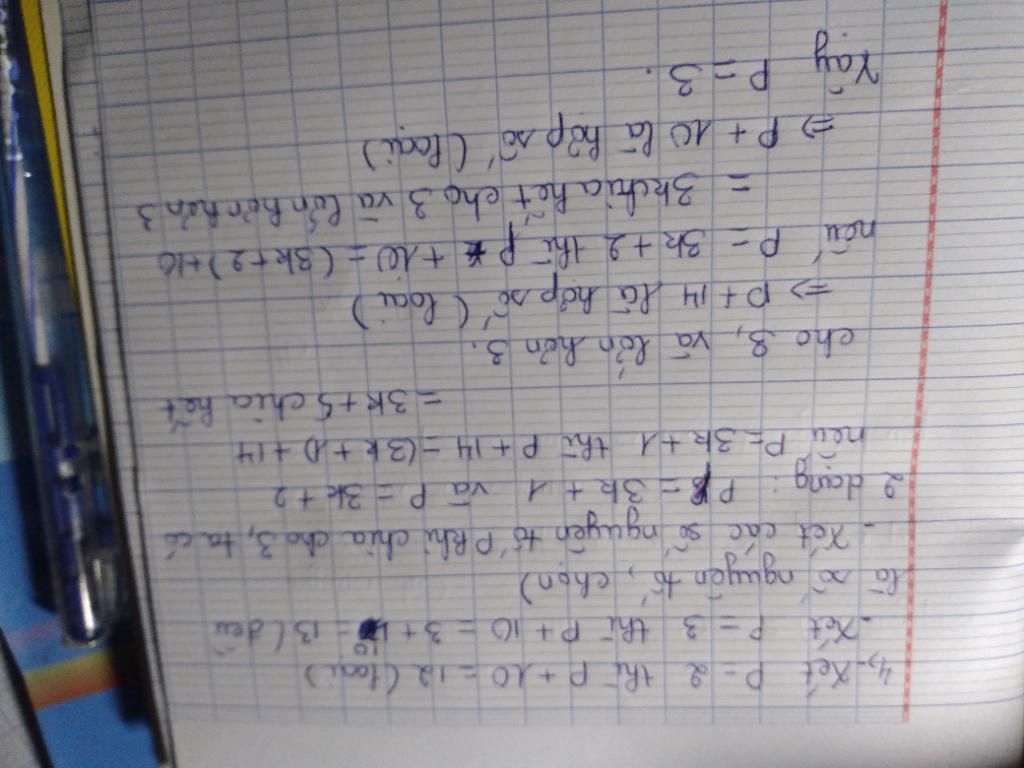 4, - Xét P = 2 thì P + 10 = 12 (loại)
- Xét P = 3 thì P + 10 = 3 + 10 = 13 (đều
là số nguyên tố, chọn)
- Xét các số nguyên tố P khi chia cho 3, ta có
2 dạng: P = 3k + 1 và P = 3k + 2
nếu P = 3k + 1 thì P + 14 = (3k + 1) + 14
= 3k + 5 chia hết
cho 3, và lớn hơn 3.
=> P + 14 là hợp số (loại)
nếu P = 3k + 2 thì P + 10 = (3k + 2) + 10
= 3k chia hết cho 3 và lớn hơn hơn 3
=> P + 10 là hợp số (loại)
Vậy P = 3.